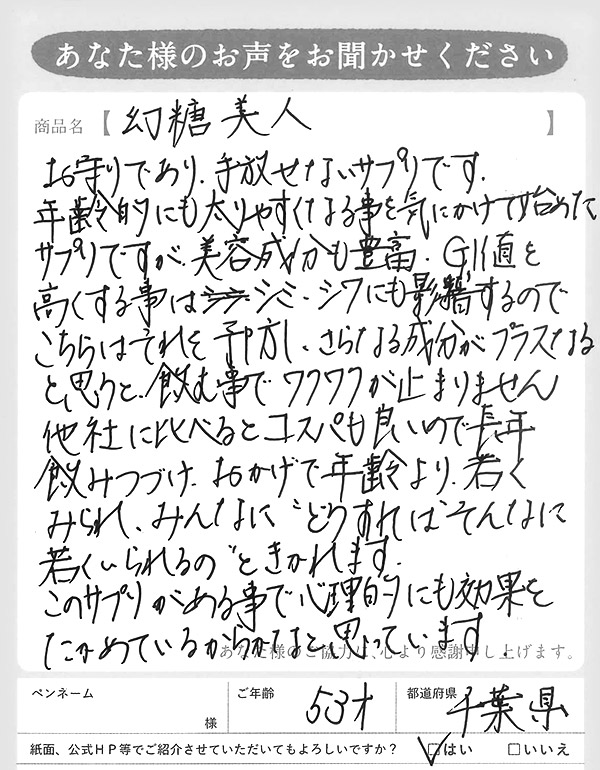 あなた様のお声をお聞かせください
商品名【 幻糖美人 】
お守りであり、手放せないサプリです。
年齢的にも太りやすくなる事を気にかけて始めた
サプリですが、美容成分も豊富。GI値を
高くする事はシミ・シワにも影響するので
こちらはそれを予防し、さらなる成分がプラスなる
と思うと、飲む事でワクワクが止まりません
他社に比べるとコスパも良いので長年
飲みつづけ、おかげで年齢より、若く
みられ、みんなに“どうすればそんなに
若くいられるの”ときかれます。
このサプリがある事で心理的にも効果を
たかめているからかなと思っています。
あなた様のご協力に、心より感謝申し上げます。
ペンネーム 様 ご年齢 53才 都道府県 千葉県
紙面、公式HP等でご紹介させていただいてもよろしいですか？ ☑はい □いいえ